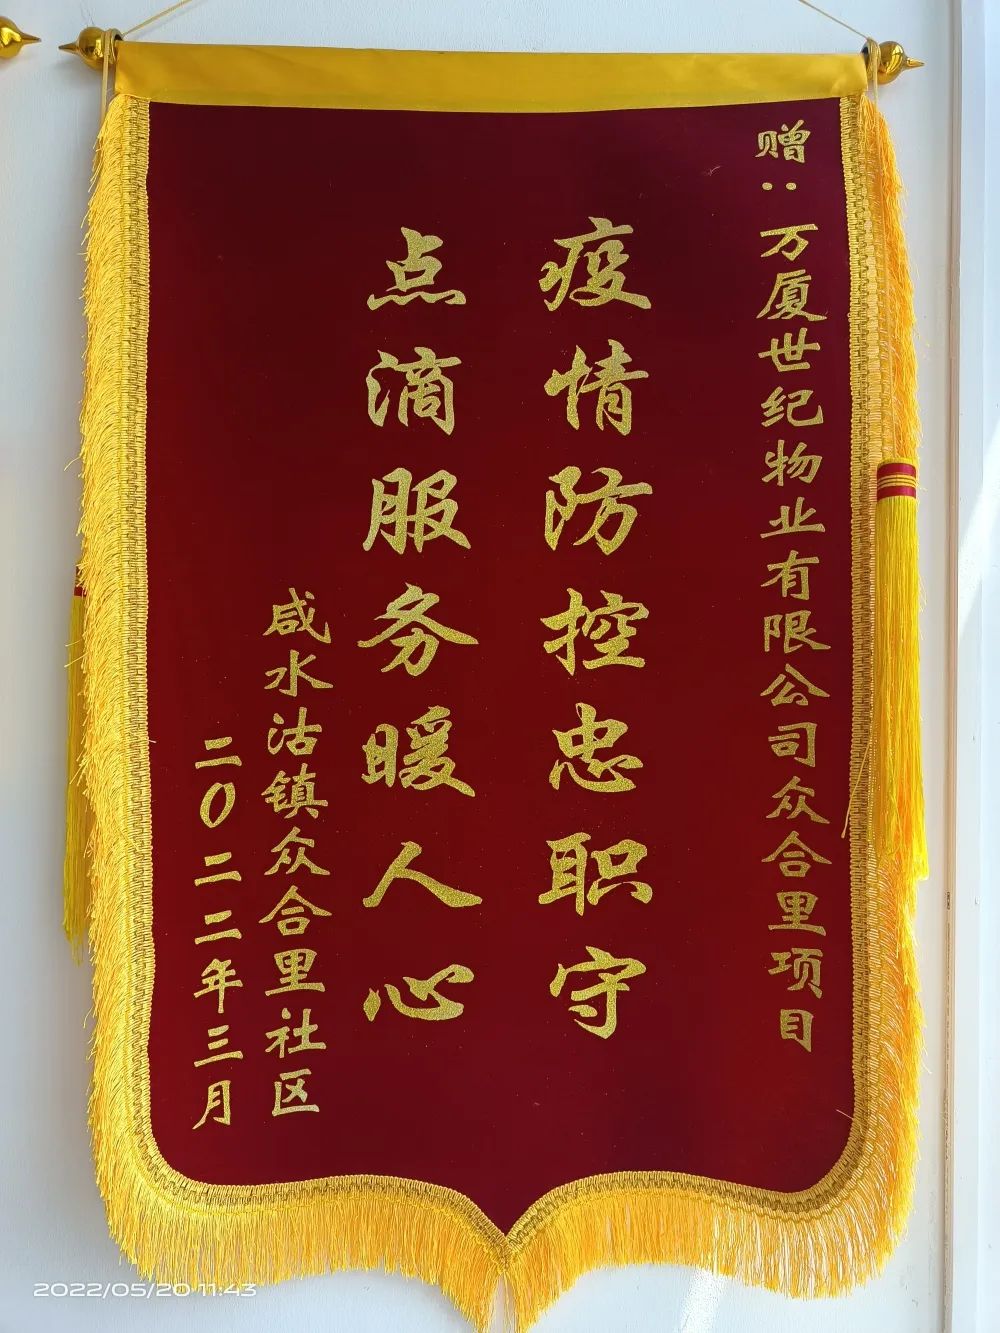 赠：万厦世纪物业有限公司众合里项目
疫情防控忠职守
点滴服务暖人心
咸水沽镇众合里社区
二〇二二年三月
2022/05/20 11:43